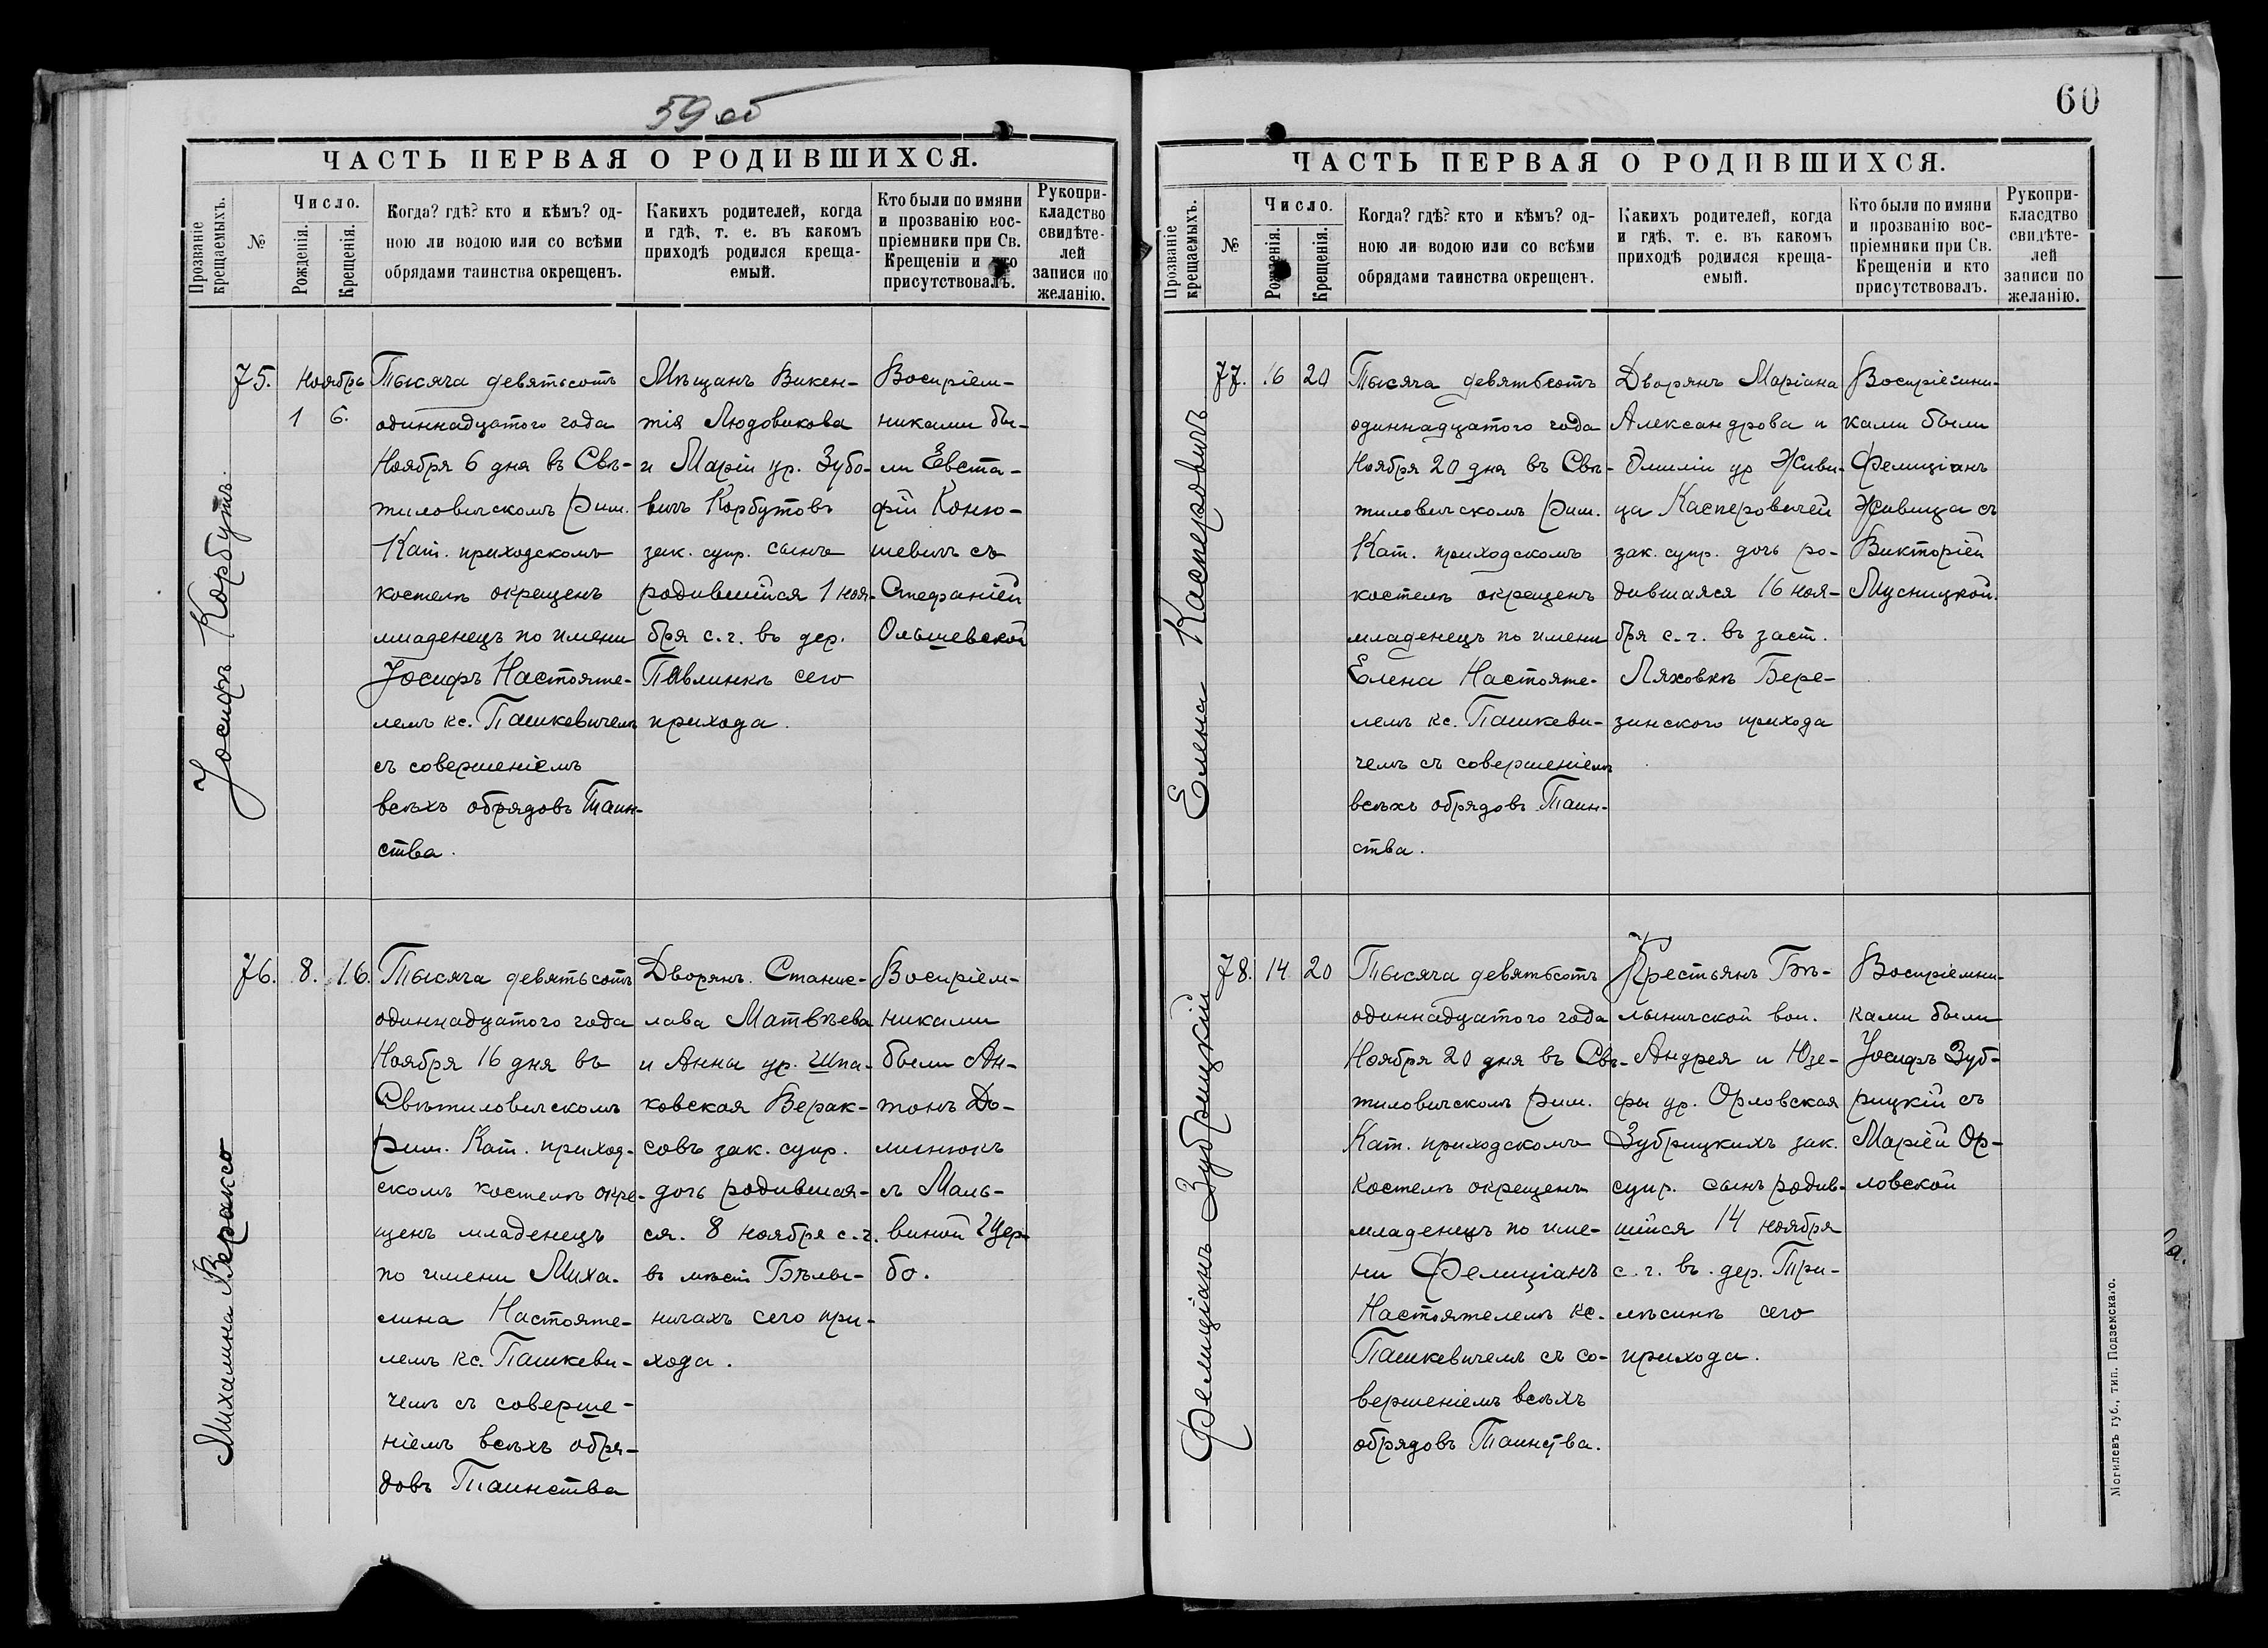 59 об
ЧАСТЬ ПЕРВАЯ О РОДИВШИХСЯ.
Прозваніе
крещаемыхъ.
№
Число.
Рожденія.
Крещенія.
Когда? гдѣ? кто и кѣмъ? од-
ною ли водою или со всѣми
обрядами таинства окрещенъ.
Какихъ родителей, когда
и гдѣ, т. е. въ какомъ
приходѣ родился креща-
емый.
Кто были по имяни
и прозванію вос-
пріемники при Св.
Крещеніи и кто
присутствовалъ.
Рукопри-
кладство
свидѣте-
лей
записи по
желанію.
Іосифъ Корбутъ.
75.
Ноябрь
1 6.
Тысяча девятьсотъ
одиннадцатого года
Ноября 6 дня въ Свѣ-
тиловичскомъ Рим.
Кат. приходскомъ
костелѣ окрещенъ
младенецъ по имени
Іосифъ Настояте-
лемъ кс. Пашкевичемъ
съ совершеніемъ
всѣхъ обрядовъ Таин-
ства.
Мѣщанъ Викен-
тія Людовикова
и Маріи ур. Зубо-
вичъ Корбутовъ
зак. супр. сынъ
родившійся 1 ноя-
бря с.г. въ дер.
Павлинкѣ сего
прихода.
Воспріем-
никами бы-
ли Евста-
фій Коню-
шевичъ съ
Стефаніей
Ольшевской
Михалина Вераксо
76.
8.
16.
Тысяча девятьсотъ
одиннадцатого года
Ноября 16 дня въ
Свѣтиловичскомъ
Рим. Кат. приход-
скомъ костелѣ окре-
щенъ младенецъ
по имени Миха-
лина Настояте-
лемъ кс. Пашкеви-
чемъ съ соверше-
ніемъ всѣхъ обря-
довъ Таинства
Дворянъ. Станис-
лава Матвѣева
и Анны ур. Шпа-
ковская Верак-
совъ зак. супр.
дочь родившая-
ся. 8 ноября с.г.
въ мѣст Бѣлы-
ничахъ сего при-
хода.
Воспріем-
никами
были Ан-
тонъ До-
минюкъ
съ Маль-
виной Щер-
бо.
60
ЧАСТЬ ПЕРВАЯ О РОДИВШИХСЯ.
Прозваніе
крещаемыхъ.
№
Число.
Рожденія.
Крещенія.
Когда? гдѣ? кто и кѣмъ? од-
ною ли водою или со всѣми
обрядами таинства окрещенъ.
Какихъ родителей, когда
и гдѣ, т. е. въ какомъ
приходѣ родился креща-
емый.
Кто были по имяни
и прозванію вос-
пріемники при Св.
Крещеніи и кто
присутствовалъ.
Рукопри-
класдтво
свидѣте-
лей
записи по
желанію.
Елена Касперовичъ
77.
16
20
Тысяча девятьсотъ
одиннадцатого года
Ноября 20 дня въ Свѣ-
тиловичскомъ Рим.
Кат. приходскомъ
костелѣ окрещенъ
младенецъ по имени
Елена Настояте-
лемъ кс. Пашкеви-
чемъ съ совершеніемъ
всѣхъ обрядовъ Таин-
ства.
Дворянъ Маріана
Александрова и
Эмиліи ур Живи-
ца Касперовичей
зак. супр. дочь ро-
дившаяся 16 ноя-
бря с.г. въ заст.
Ляховкѣ Бере-
зинского прихода
Воспріемни-
ками были
Фелиціанъ
Живица съ
Викторіей
Мусницкой.
Фелиціанъ Зубрицкій
78.
14
20
Тысяча девятьсотъ
одиннадцатого года
Ноября 20 дня въ Свѣ-
тиловичскомъ Рим.
Кат. приходскомъ
костелѣ окрещенъ
младенецъ по име-
ни Фелиціанъ
Настоятелемъ кс.
Пашкевичемъ съ со-
вершеніемъ всѣхъ
обрядовъ Таинства.
Крестьянъ Бѣ-
лыничской вол.
Андрея и Юзе-
фы ур. Орловская
Зубрицкихъ зак.
супр. сынъ родив-
шійся 14 ноября
с.г. въ дер. Три-
лѣсинѣ сего
прихода.
Воспріемни-
ками были
Іосифъ Зуб-
рицкій съ
Маріей Ор-
ловской
Могилевъ губ., тип. Подземскаго.